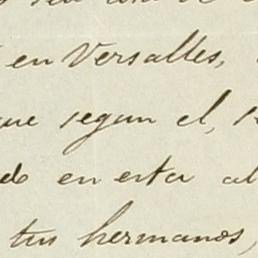 en Versalles,
que segun el, s
do en esta al
tus hermanos,